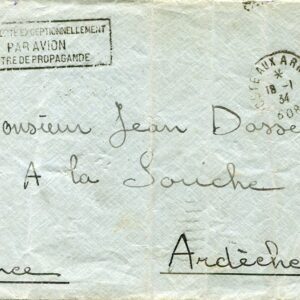 PORTÉ EXCEPTIONNELLEMENT
PAR AVION
TRE DE PROPAGANDE
POSTE AUX AR
*
18 -1
34
onsieur Jean Dasse
A la Souche
Ardèche
nce